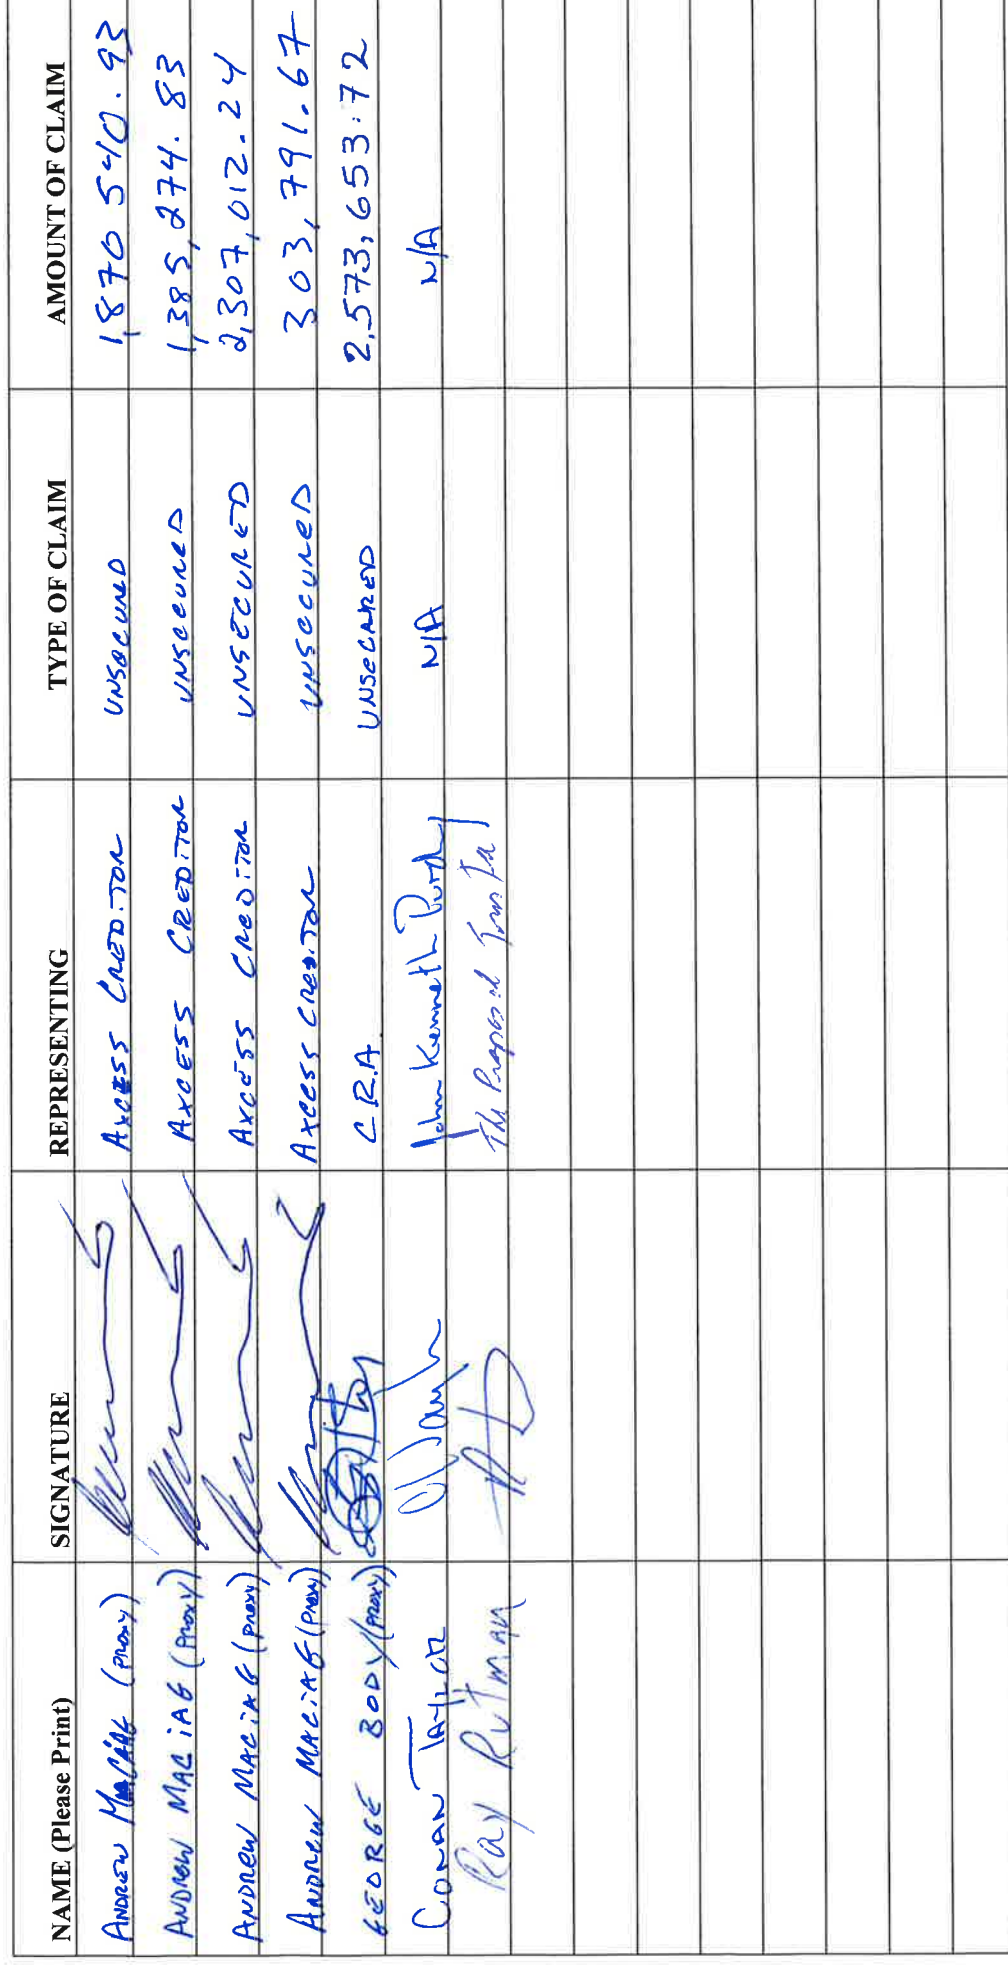 NAME (Please Print) SIGNATURE REPRESENTING TYPE OF CLAIM AMOUNT OF CLAIM
ANDREW MACIAG (PROXY) AXCESS CREDITOR UNSECURED 1,870 540.93
ANDREW MACIAG (PROXY) AXCESS CREDITOR UNSECURED 1,385,274.83
ANDREW MACIAG (PROXY) AXCESS CREDITOR UNSECURED 2,307,012.24
ANDREW MACIAG (PROXY) AXCESS CREDITOR UNSECURED 303,791.67
GEORGE BODY (PROXY) C.R.A. UNSECARED 2,573,653.72
CONAN TAYLOR John Kenneth N/A N/A
Ray RUTMAN The Proposal